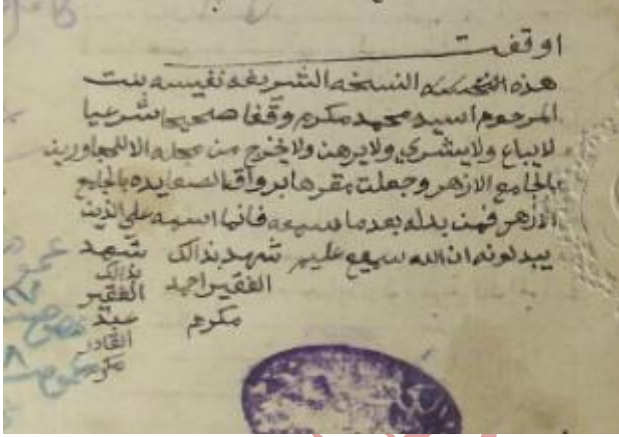 اوقفت
هذه النسخه الشريفه نفيسه بنت
المرحوم السيد محمد مكرم وقفا صحيحا شرعيا
لايباع ولايشترى ولايرهن ولايخرج من محله الا للمجاورين
بالجامع الازهر وجعلت مقرها برواق الصعايده بالجامع
الأزهر فمن بدله بعد ما سمعه فانما اسمه على الذين
يبدلونه ان الله سميع عليم شهد بذالك شهد
الفقير احمد بذالك
مكرم الفقير
عبد
القادر
مكرم